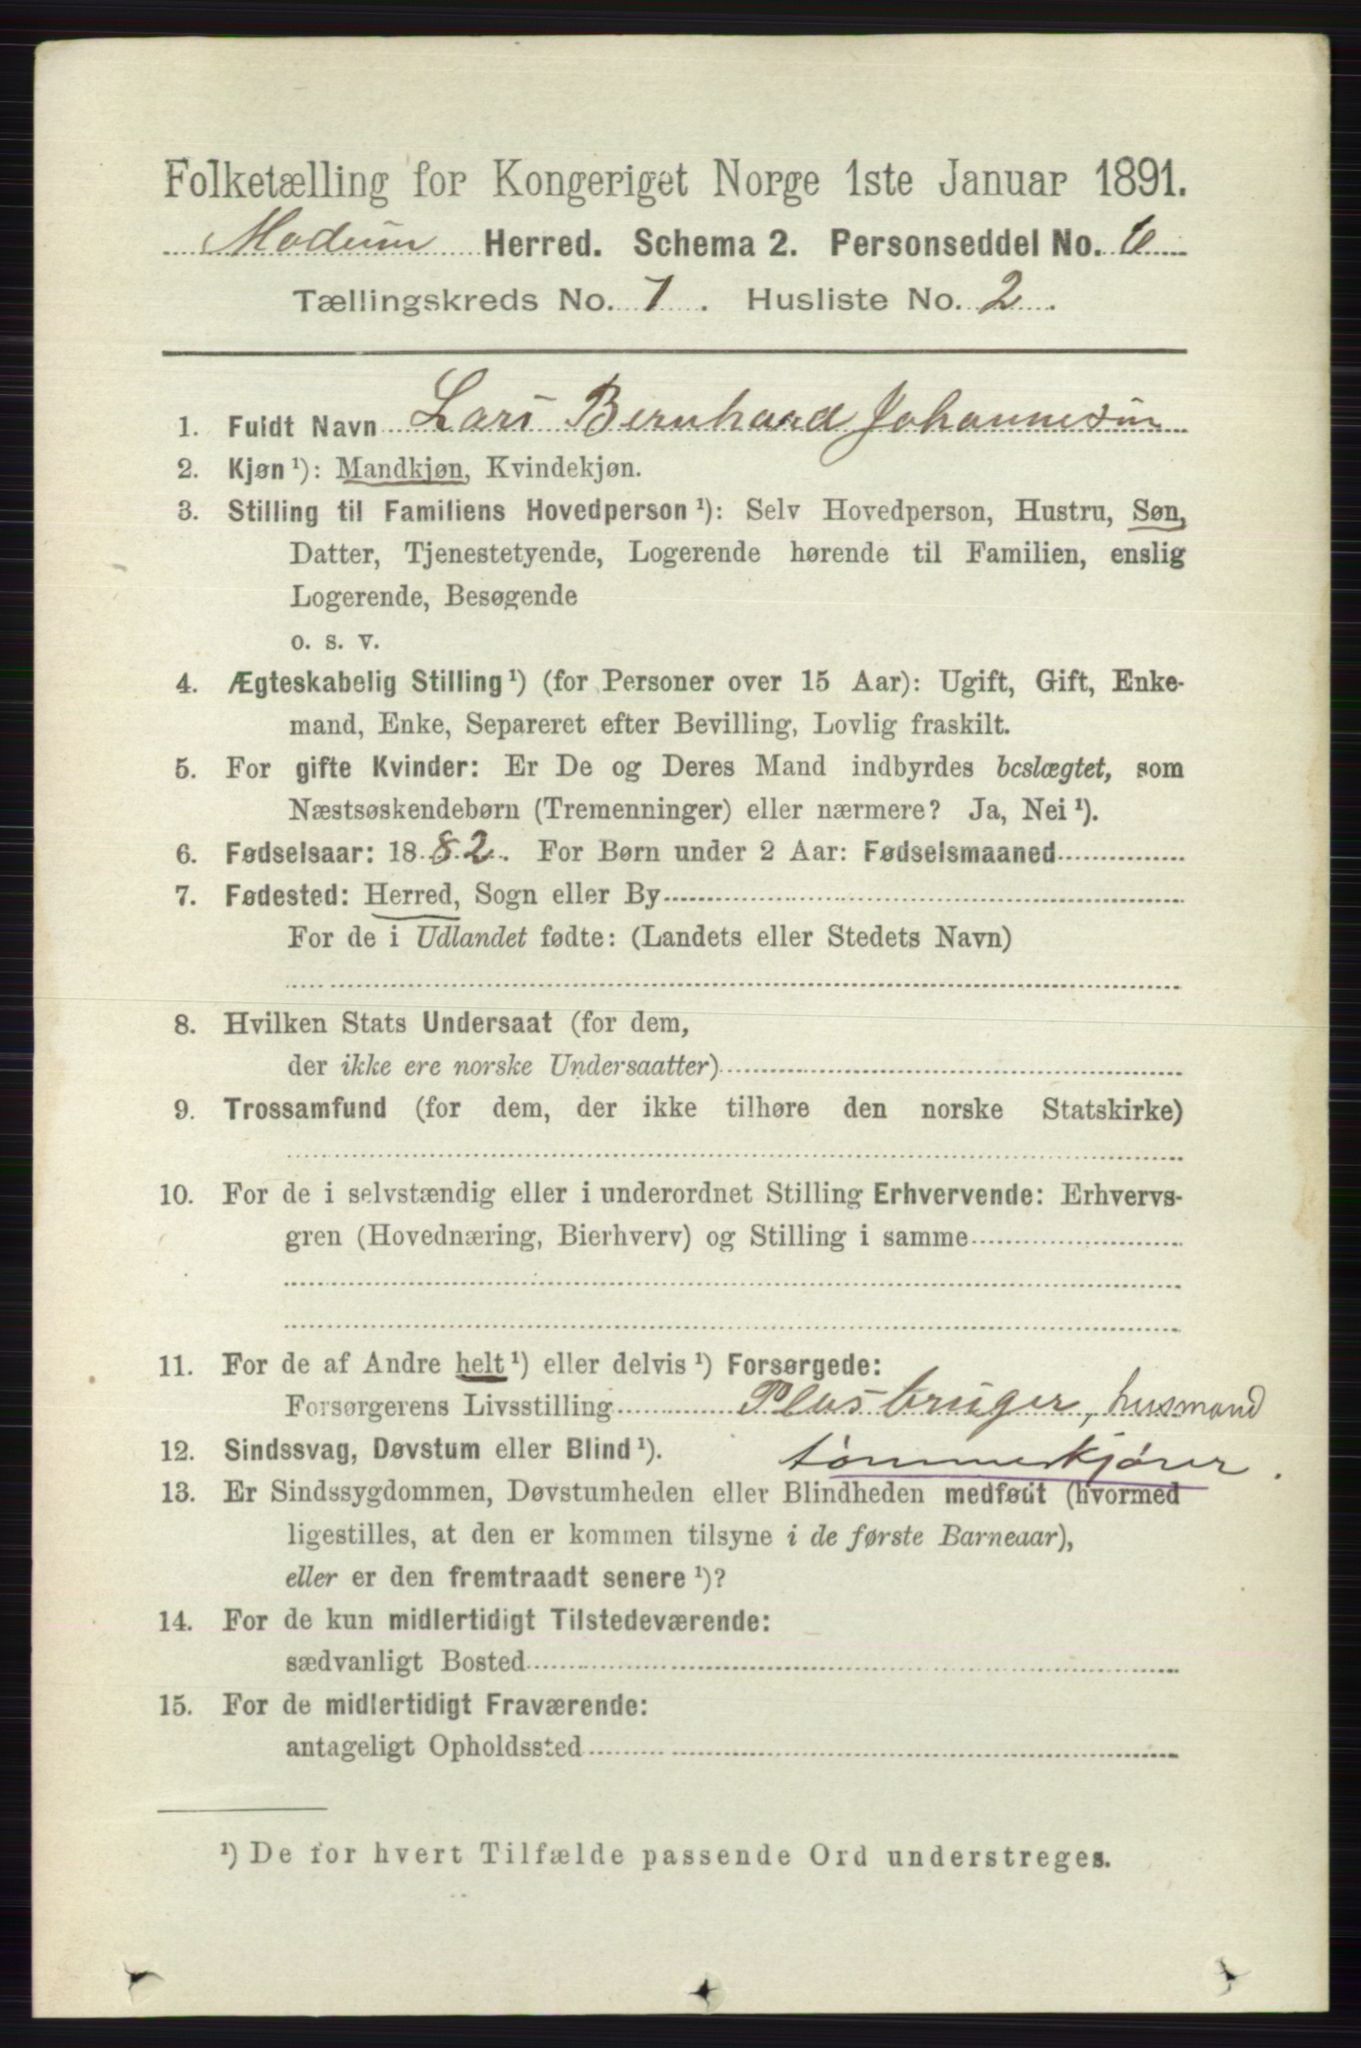 Folketælling for Kongeriget Norge 1ste Januar 1891.
Modum Herred. Schema 2. Personseddel No. 6
Tællingskreds No. 7. Husliste No. 2.
1. Fuldt Navn Lars Bernhard Johannesen
2. Kjøn ¹): Mandkjøn, Kvindekjøn.
3. Stilling til Familiens Hovedperson ¹): Selv Hovedperson, Hustru, Søn,
Datter, Tjenestetyende, Logerende hørende til Familien, enslig
Logerende, Besøgende
o. s. v.
4. Ægteskabelig Stilling ¹) (for Personer over 15 Aar): Ugift, Gift, Enke-
mand, Enke, Separeret efter Bevilling, Lovlig fraskilt.
5. For gifte Kvinder: Er De og Deres Mand indbyrdes beslægtet, som
Næstsøskendebørn (Tremenninger) eller nærmere? Ja, Nei ¹).
6. Fødselsaar: 1882. For Børn under 2 Aar: Fødselsmaaned
7. Fødested: Herred, Sogn eller By
For de i Udlandet fødte: (Landets eller Stedets Navn)
8. Hvilken Stats Undersaat (for dem,
der ikke ere norske Undersaatter)
9. Trossamfund (for dem, der ikke tilhøre den norske Statskirke)
10. For de i selvstændig eller i underordnet Stilling Erhvervende: Erhvervs-
gren (Hovednæring, Bierhverv) og Stilling i samme
11. For de af Andre helt ¹) eller delvis ¹) Forsørgede:
Forsørgerens Livsstilling Plasbruger, husmand
12. Sindssvag, Døvstum eller Blind ¹). tømmerkjører.
13. Er Sindssygdommen, Døvstumheden eller Blindheden medfødt (hvormed
ligestilles, at den er kommen tilsyne i de første Barneaar),
eller er den fremtraadt senere ¹)?
14. For de kun midlertidigt Tilstedeværende:
sædvanligt Bosted
15. For de midlertidigt Fraværende:
antageligt Opholdssted
¹) De for hvert Tilfælde passende Ord understreges.